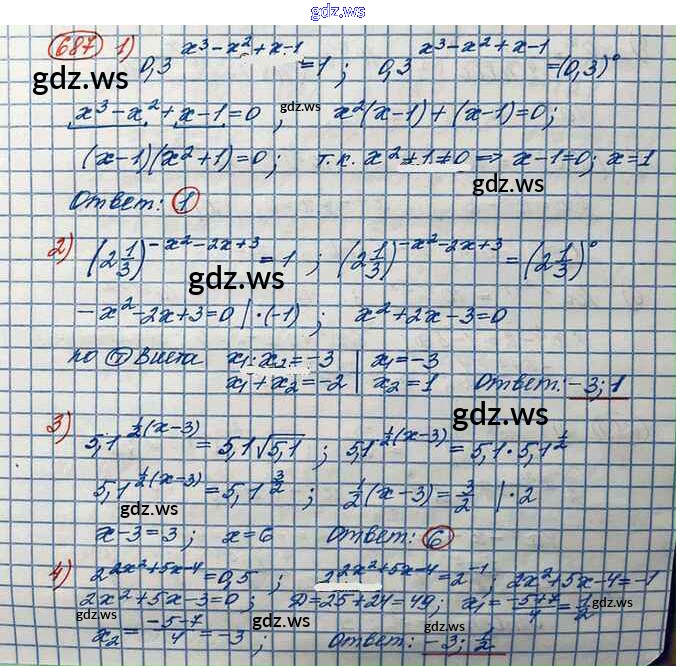 gdz.ru
687 1) 0,3^{x³-x²+x-1} = 1 ; 0,3^{x³-x²+x-1} = (0,3)⁰
gdz.ru
x³-x²+x-1=0 ; gdz.ru x²(x-1)+(x-1)=0;
(x-1)(x²+1)=0; т.к. x²+1≠0 => x-1=0; x=1
gdz.ru
Ответ: 1
2) (2 1/3)^{-x²-2x+3} = 1 ; (2 1/3)^{-x²-2x+3} = (2 1/3)⁰
gdz.ru
-x²-2x+3=0 |·(-1) ; x²+2x-3=0
по Т Виета x₁·x₂=-3 | x₁=-3
x₁+x₂=-2 | x₂=1 Ответ: -3; 1
gdz.ru
3) 5,1^{1/2(x-3)} = 5,1√5,1 ; 5,1^{1/2(x-3)} = 5,1·5,1^{1/2}
5,1^{1/2(x-3)} = 5,1^{3/2} ; 1/2(x-3) = 3/2 |·2
gdz.ru
x-3=3; x=6 Ответ: 6
gdz.ru
4) 2^{2x²+5x-4} = 0,5 ; 2^{2x²+5x-4} = 2^{-1}; 2x²+5x-4=-1
2x²+5x-3=0 ; D=25+24=49; x₁= (-5+7)/4 = 1/2
x₂= (-5-7)/4 = -3 ; Ответ: -3; 1/2
gdz.ru